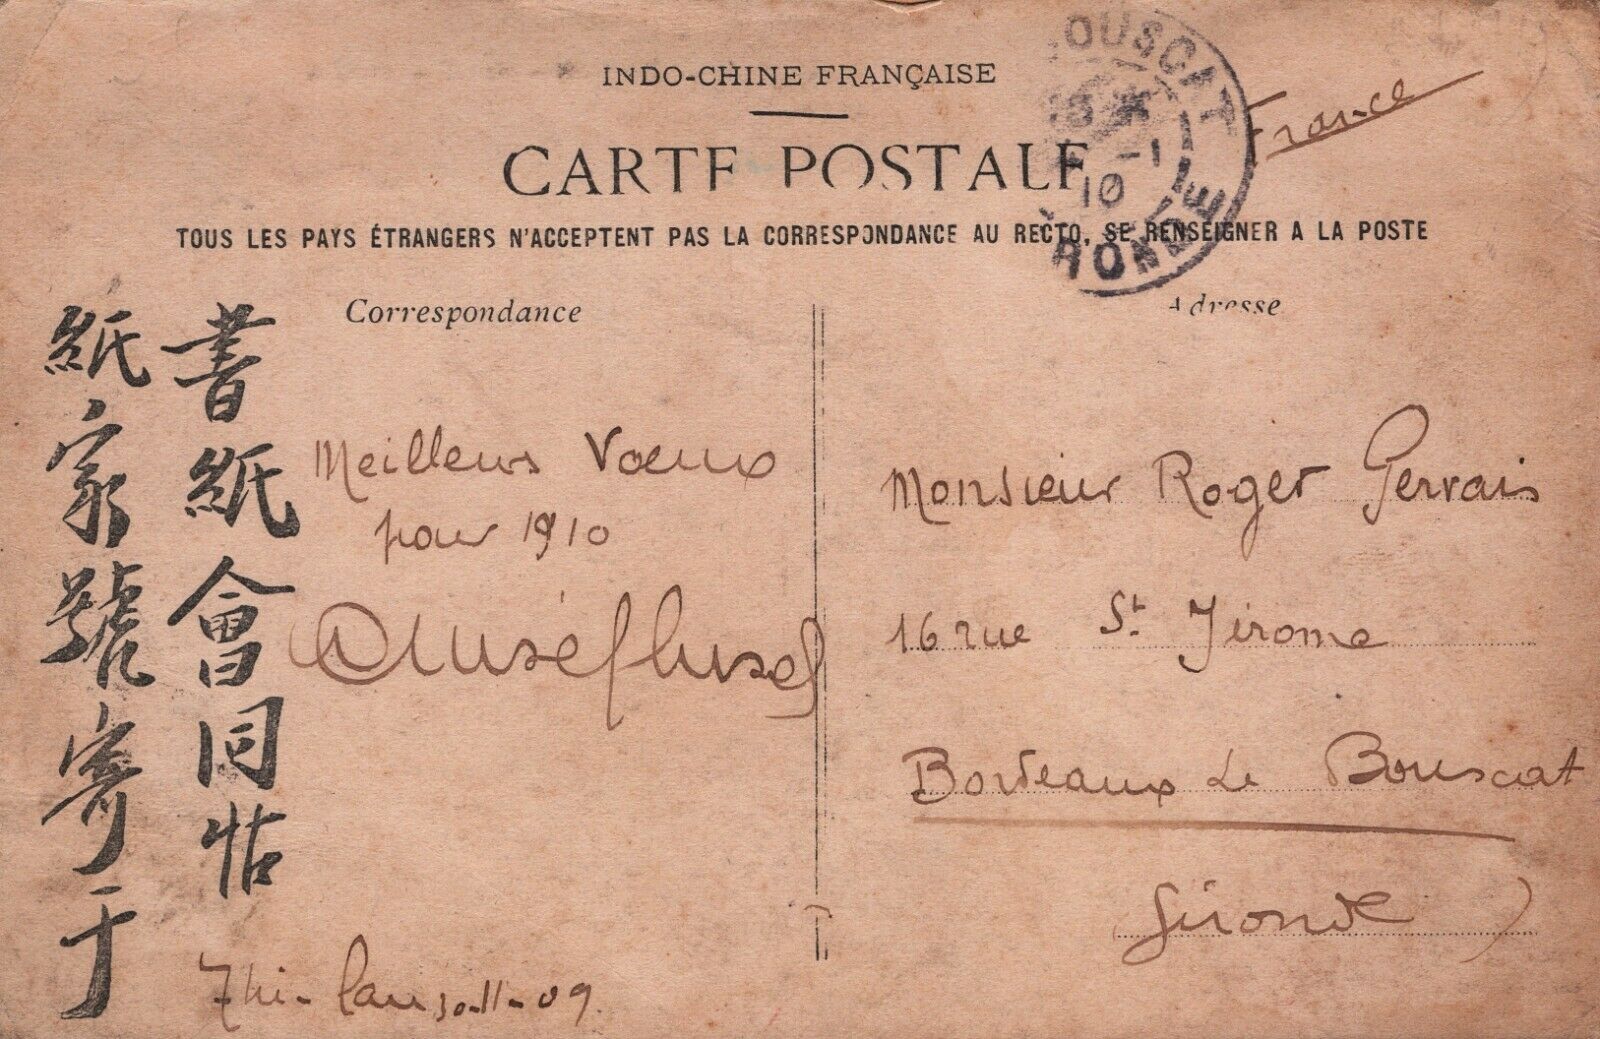 INDO-CHINE FRANÇAISE
CARTE POSTALE
TOUS LES PAYS ÉTRANGERS N'ACCEPTENT PAS LA CORRESPONDANCE AU RECTO, SE RENSEIGNER A LA POSTE
OUSCAT
-1
10
RONDE
France
Correspondance
Adresse
書紙會同帖
紙家號寄于
Meilleurs Voeux
pour 1910
30-11-09
Monsieur Roger Gervais
16 rue St. Jérome
Bordeaux Le Bouscat
Gironde